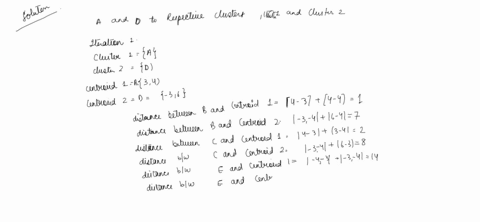 Solution
A and D to Respective clusters, and Cluster 2
Iteration 1.
Cluster 1 = {A}
cluster 2 = {D}
centroid 1 = A{3,4}
centroid 2 = D = {-3,6}
distance between B and Centroid 1 = [4-3] + [4-4] = 1
distance between B and Centroid 2. |-3,-4| + |6-4| = 7
distance between C and Centroid 1. |4-3| + |3-4| = 2
distance b/w C and Centroid 2. |-3,-4| + |6-3| = 8
distance b/w E and Centroid 1 = |-4,-4| + |-3,-4| = 14
distance b/w E and Cent